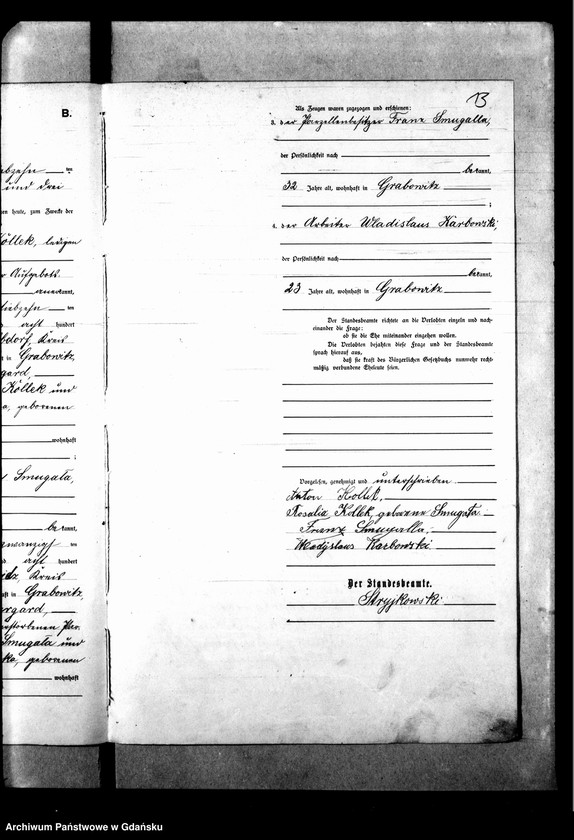 B.
bzehn
und drei
en heute, zum Zwecke der
Köllek, ledigen
Aufgebots
anerkannt,
siebzehn ten
acht hundert
dorf, Kreis
t in Grabowitz,
gard,
Köllek und
a, geborenen
wohnhaft
;
Smugała,
be kannt,
zwanzig ten
acht hundert
itz, Kreis
aft in Grabowitz,
rgard,
storbenen
Smugała und
ka, geborenen
wohnhaft
13
Als Zeugen waren zugezogen und erschienen:
3. der Parzellenbesitzer Franz Smugalla,
der Persönlichkeit nach
be kannt,
32 Jahre alt, wohnhaft in Grabowitz
;
4. der Arbeiter Wladislaus Karbowski,
der Persönlichkeit nach
be kannt,
23 Jahre alt, wohnhaft in Grabowitz
Der Standesbeamte richtete an die Verlobten einzeln und nach-
einander die Frage:
ob sie die Ehe miteinander eingehen wollen.
Die Verlobten bejahten diese Frage und der Standesbeamte
sprach hierauf aus,
daß sie kraft des Bürgerlichen Gesetzbuchs nunmehr recht-
mäßig verbundene Eheleute seien.
Vorgelesen, genehmigt und unterschrieben
Anton Kollek,
Rosalia Kollek, geborene Smugała
Franz Smugalla.
Władysław Karbowski
Der Standesbeamte.
Stryjkowski
Archiwum Państwowe w Gdańsku